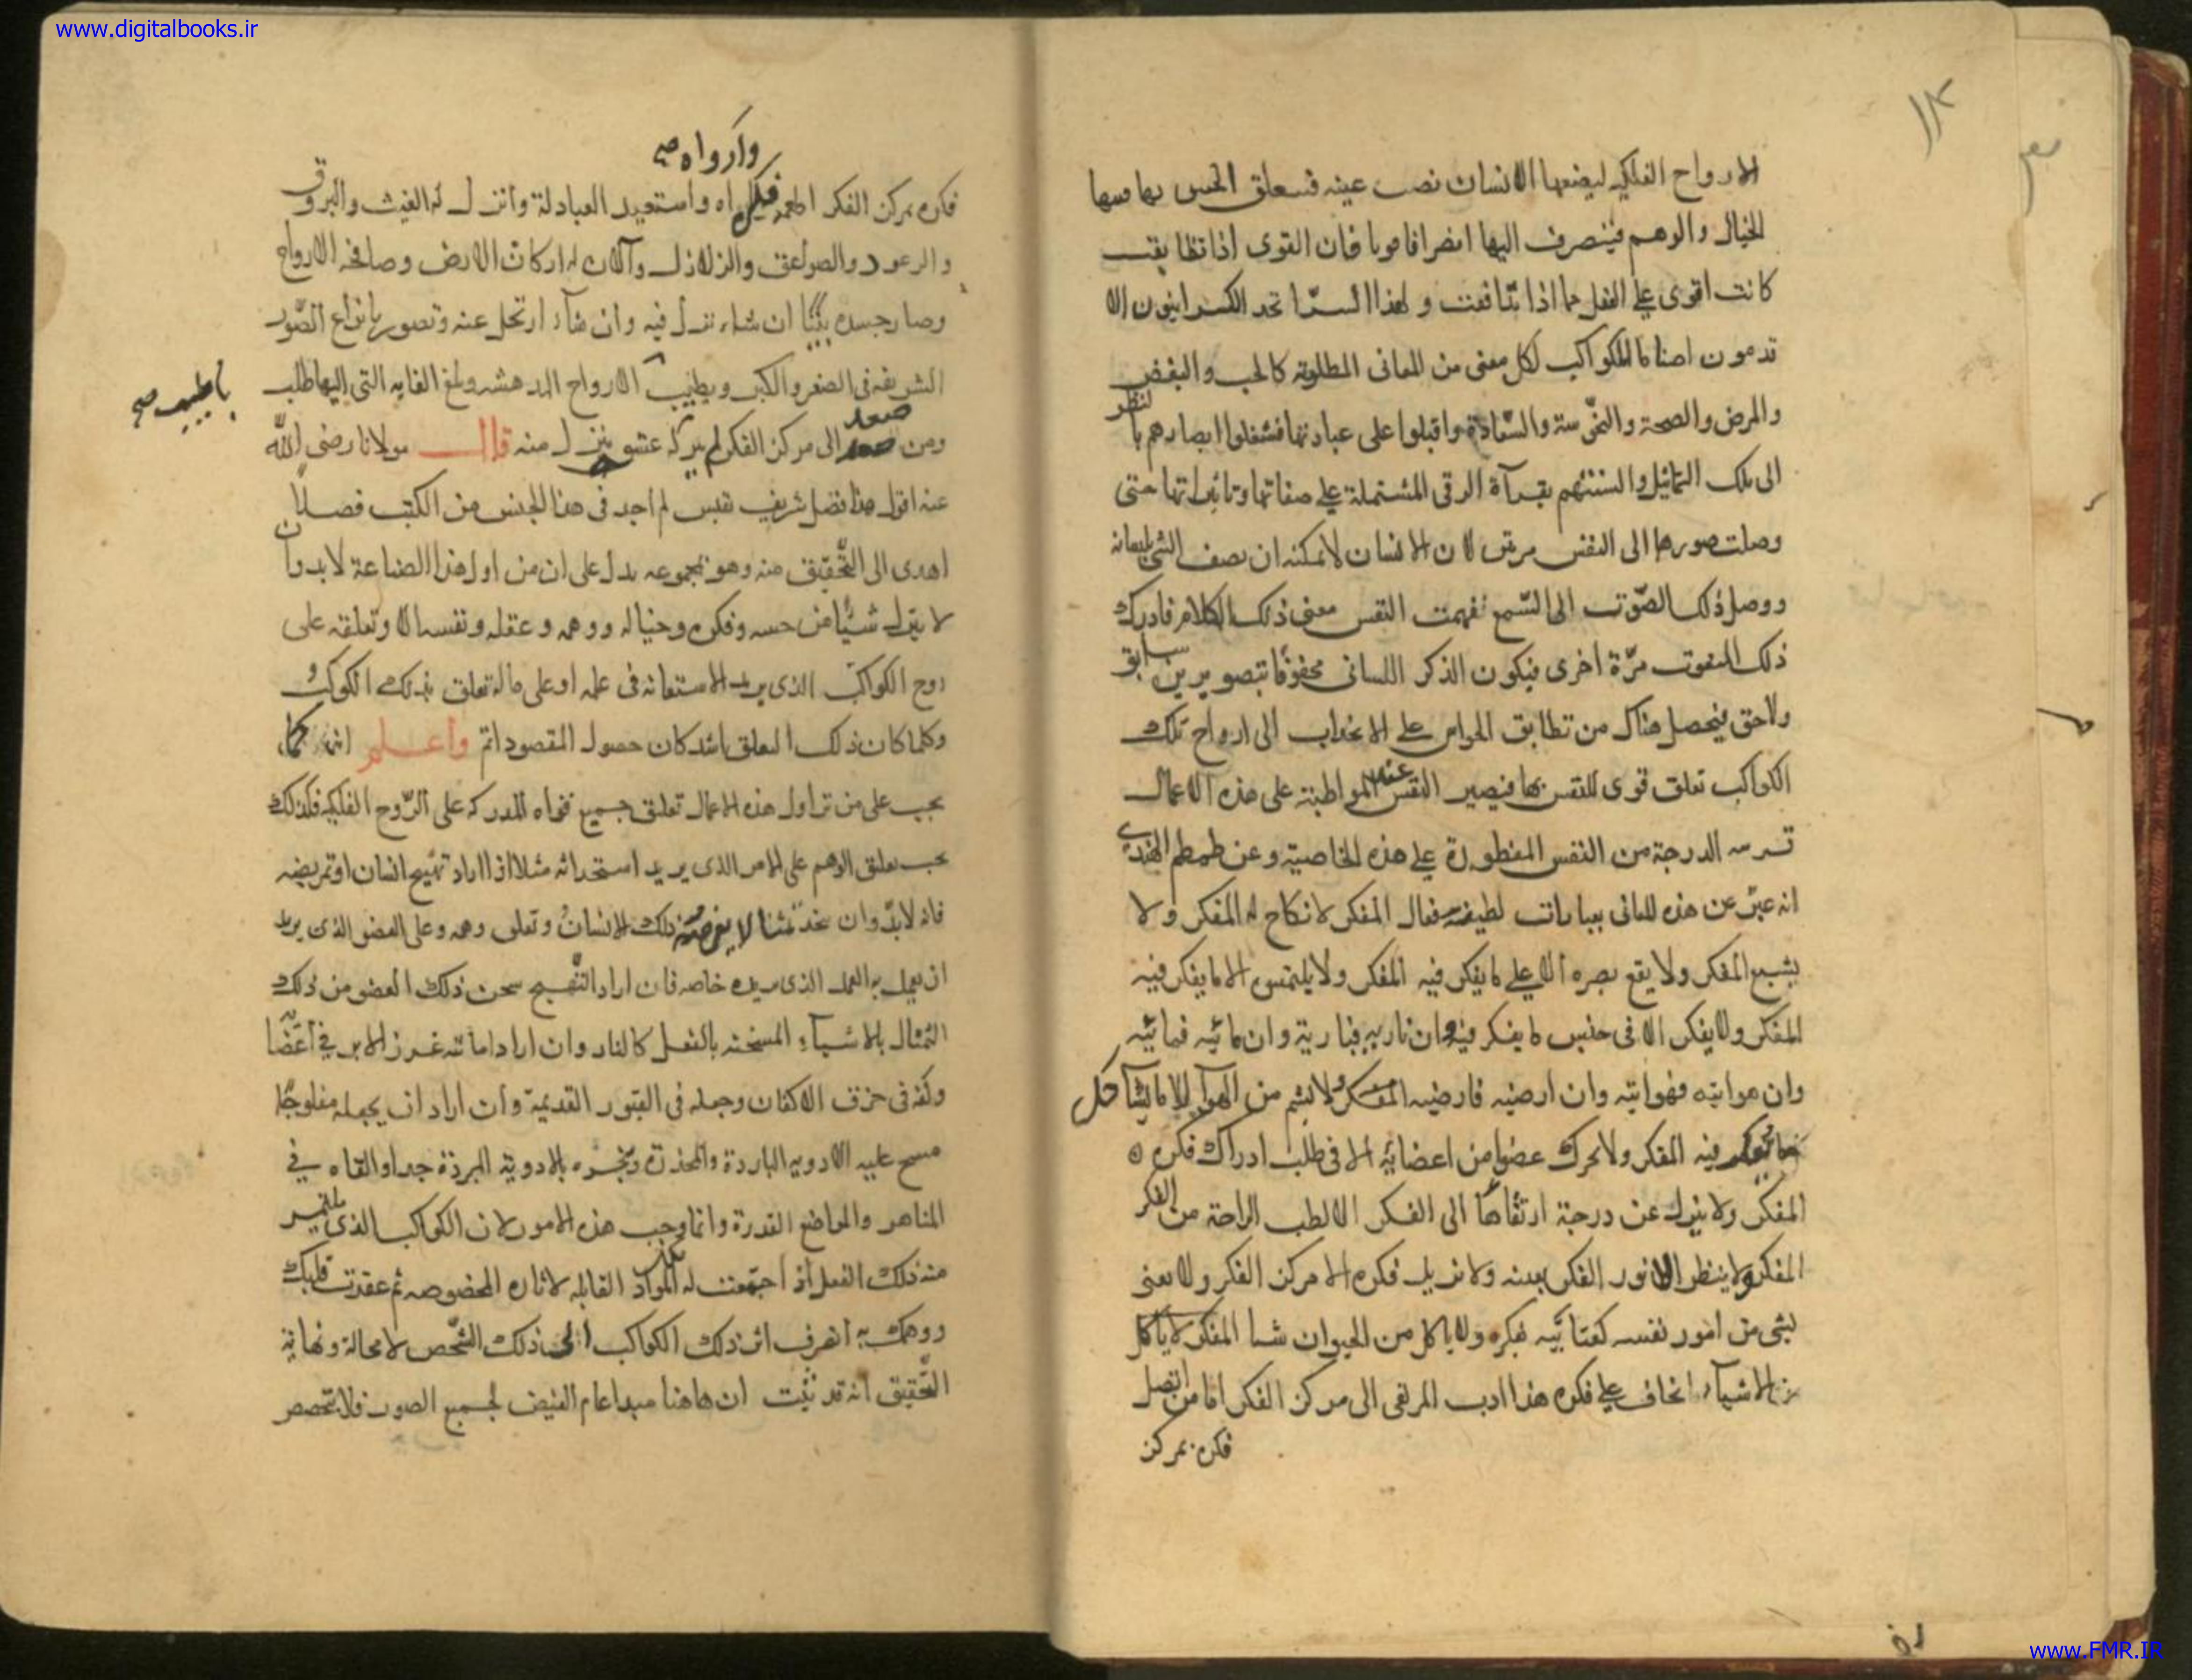 www.digitalbooks.ir
الارواح الفلكيه ليضعها الانسان نصب عينه فيتعلق الحس بها
الخيال والوهم فينصرف اليها انصرافا قويا فان القوى اذا تطابقت
كانت اقوى على الفعل مما اذا تنافت و لهذا السرّ اتحد الكسدانيون الا
تدعون اصناما للكواكب لكل معنى من المعانى المطلوبة كالحب والبغض
والمرض والصحة والنحوسة والسّعادة واقبلوا على عبادتها فشغلوا ابصارهم بالنظر
الى تلك التماثيل والسنتهم بقرآة الرقى المشتملة على صفاتها وتاثيراتها حتى
وصلت صورها الى النفس مرتين لان الانسان لا يمكنه ان يصف الشئ بلسانه
ووصل ذلك الصّوت الى السّمع ففهمت النفس معنى ذلك الكلام فادرك
ذلك المنعوت مرّة اخرى فيكون الذكر اللسانى محفوفا بتصويرين سابق
ولاحق فيحصل هناك من تطابق الحواس على الانجذاب الى ارواح تلك
الكواكب تعلق قوى للنفس بها فيصير النفس عند المواظبة على هذه الاعمال
الدرجة من النفس المفطورة على هذه الخاصية وعن طمطم الهندى
انه عبّر عن هذه المعانى بعبارات لطيفة فقال المفكر لا نكاح له المفكر ولا
يشبع المفكر ولا يقع بصره الا على ما يفكر فيه المفكر ولا يلتمس الا ما يفكر فيه
المفكر ولا يفكر الا فى جنس ما يفكر فيه ان ناريه فنارية وان مائيه فمائيه
وان هوائيه فهوائيه وان ارضيه فارضيه المفكر ولا يشم من الهوآ الا ما يشآكل
فيه المفكر ولا يحرك عضوا من اعضائه الا فى طلب ادراك فكره
المفكر ولا ينزل عن درجة ارتقاها الى الفكر الا لطلب الراحة من الفكر
المفكر ولا ينظر الا نور الفكر بعينه ولا يزيل فكره الا مركز الفكر ولا يعنى
بشى من امور نفسه كعنائيه بفكره ولا ياكل من الحيوان شيا المفكر لا ياكل
من الاشيآء الخاف على فكره هذا ادب المرتقى الى مركز الفكر اما من اتصل
فكره بمركز
وارواه صح
فكره بمركز الفكر اطعمه فكره واه واستعبد العبادلة وانزل له الغيث والبروق
والرعود والصواعق والزلازل وآلات له اركان الارض وصافحه الارواح
وصار جسده بيتا ان شاء نزل فيه وان شآء ارتحل عنه وتصور بانواع الصّور
الشريفه فى الصغر والكبر ويطبيب الارواح المدهشه وبلغ الغايه التى اليها طلب
ومن صعد الى مركز الفكر لم يتركه عشو ينزل منه قال مولانا رضى الله
عنه اقول هذا فصل شريف نفيس لم اجد فى هذا الجنس من الكتب فصلا
اهدى الى التّحقيق منه وهو بمجموعه يدل على ان من اول هذا الضاعة لا بد وان
لا يترك شيئا من حسه وفكره وخياله ووهمه وعقله ونفسه الا وتعلقه على
روح الكواكب الذى يريد الاستعانه فى علمه او على ما له تعلق بذلك الكوكب
وكلما كان ذلك التعلق اشد كان حصول المقصود اتم واعلم انه كما
يجب على من تراول هذه الاعمال تعلق جميع قواه المدركه على الرّوح الفلكيه فكذلك
يجب تعلق الوهم على الامر الذى يريد استحداثه مثلا اذا اراد تهييج انسان او تمريضه
فانه لا بدّ وان يتخذ تمثالا يفرضه ذلك الانسان وتعلق وهمه وعلى العضو الذى يريد
ان يعمل به العمل الذى يريده خاصه فان اراد التّهيج سخن ذلك العضو من ذلك
التمثال بالاشيآء المسخنه بالفعل كالنار وان اراد اماتته غرز الابر فى اعضا
وكفنه فى خرق الاكفان وجعله فى القبور القديمة وان اراد ان يجعله مفلوجا
مسح عليه الادويه الباردة والمخدرة وبخره بالادوية المبردة جدا والقاه فى
المناهر والمواضع القدرة وانما وجب هذه الامور لان الكواكب الذى يلتمس
منه ذلك الفعل اذا اجتمعت له تلك المواد القابله لاثاره المخصوصه ثم عقدت قلبك
ووهمك به انصرف اثر ذلك الكواكب الى ذلك الشّخص لا محالة ونهاية
التّحقيق انه قد ثبت ان هاهنا مبدا عام الفيض لجميع الصور فلا تخصص
www.FMR.IR